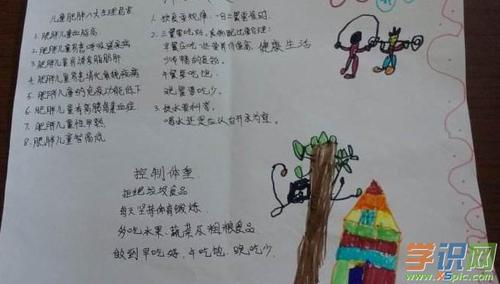 儿童肥胖八大主理危害
1. 肥胖儿童血脂高
2. 肥胖儿童易患呼吸道疾病
3. 肥胖儿童易诱发脂肪肝
4. 肥胖儿童易患消化系统疾病
5. 肥胖儿童的免疫功能低下
6. 肥胖儿童有高胰岛素血症
7. 肥胖儿童性早熟
8. 肥胖儿童智商低
1. 饮食要规律，一日三餐要按时。
2. 三餐吃好，
早餐应吃
少
午餐要吃饱，
晚餐要吃少。
3. 饮水要科学，
喝水还是应以白开水为宜。
健康生活
控制体重
拒绝垃圾食品
每天坚持体育锻炼
多吃水果、蔬菜及粗粮食品
做到早吃好，午吃饱，晚吃少。
学识网
www.XSpic.com